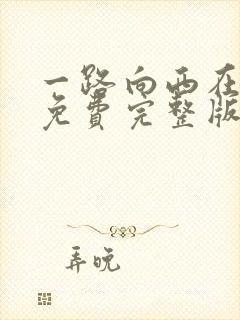 一路向西在
免费完整版
弄晚